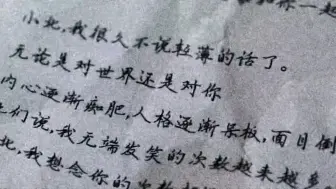 和你一起
小北,我很久不说轻薄的话了。
无论是对世界还是对你
内心逐渐痴肥,人格逐渐呆板,面目倒
们说,我无端发笑的次数越来越多
北,我想念你的次数